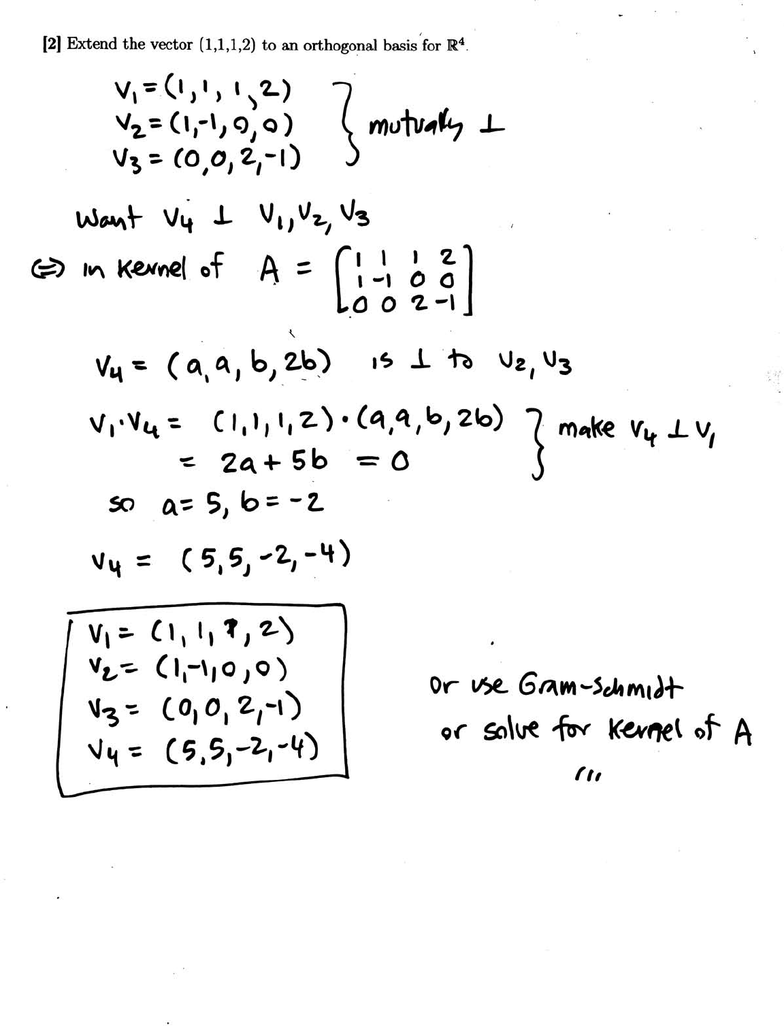 [2] Extend the vector (1,1,1,2) to an orthogonal basis for ℝ⁴.
v₁ = (1, 1, 1, 2)
v₂ = (1,-1, 0, 0) } mutually ⊥
v₃ = (0,0, 2,-1)
Want v₄ ⊥ v₁, v₂, v₃
⇔ in kernel of A = [1 1 1 2
1 -1 0 0
0 0 2 -1]
v₄ = (a, a, b, 2b) is ⊥ to v₂, v₃
v₁·v₄ = (1, 1, 1, 2)·(a, a, b, 2b) } make v₄ ⊥ v₁
= 2a + 5b = 0
so a = 5, b = -2
v₄ = (5, 5, -2, -4)
v₁ = (1, 1, 1, 2)
v₂ = (1,-1, 0, 0)
v₃ = (0, 0, 2,-1)
v₄ = (5, 5,-2,-4)
or use Gram-Schmidt
or solve for kernel of A
...